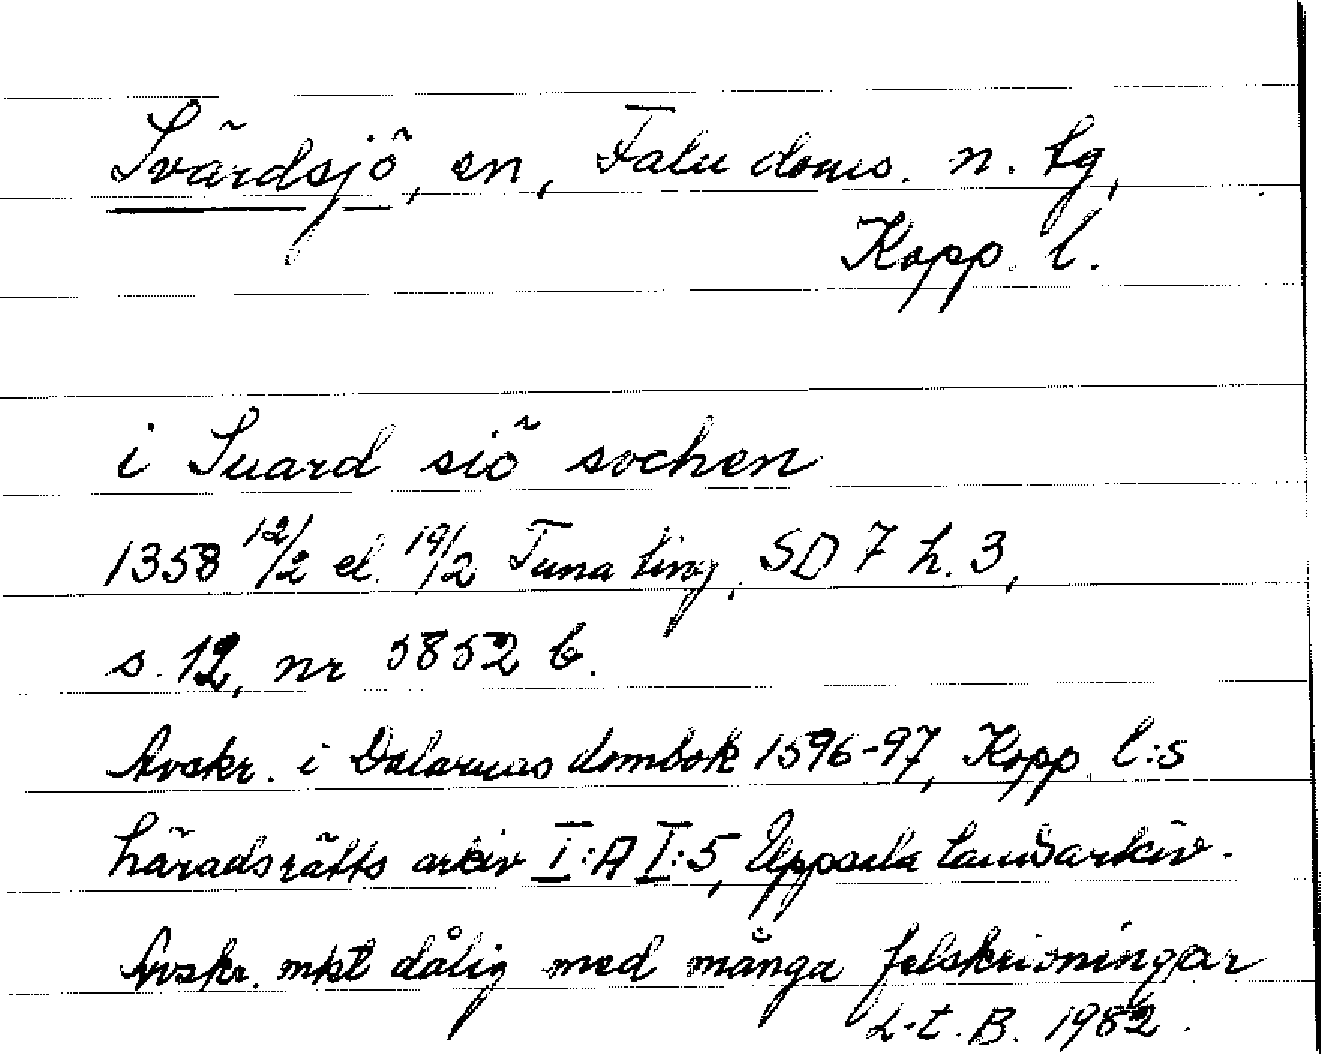 Svärdsjö, sn, Falu doms. n. tg,
Kopp. l.
i Suard siö sochen
1358 12/2 el. 19/2 Tuna ting, SD 7 h. 3,
s. 12, nr 5852 b.
Avskr. i Dalarnas dombok 1596-97, Kopp. l:s
häradsrätts arkiv I:A I:5, Uppsala landsarkiv.
Avskr. mkt dålig med många felskrivningar
L-t. B. 1982.